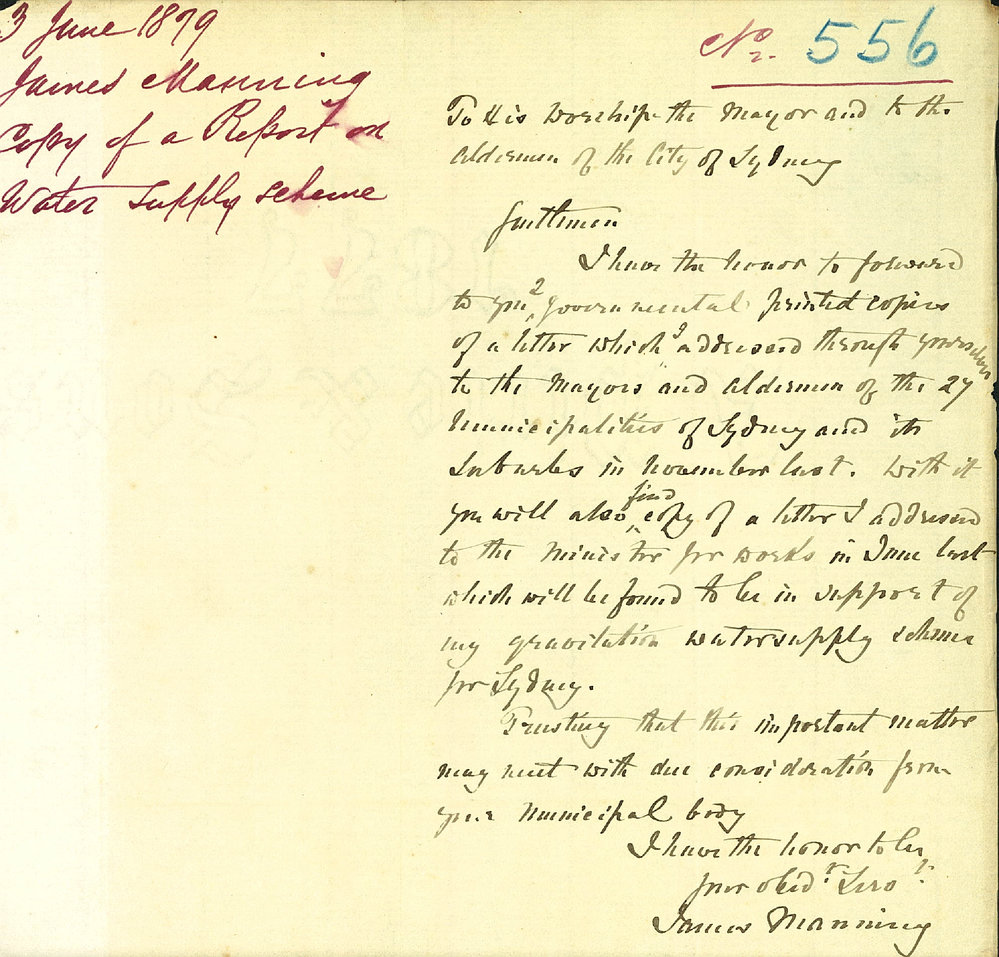 3 June 1879
James Manning
Copy of a Report on
Water Supply Scheme
No. 556
To His Worship the Mayor and to the
Aldermen of the City of Sydney
Gentlemen
I have the honor to forward
to you 2 Governmental printed copies
of a letter which I addressed through yourselves
to the Mayors and Aldermen of the 27
Municipalities of Sydney and its
Suburbs in November last. With it
you will also find copy of a letter I addressed
to the Minister for Works in June last
which will be found to be in support of
my gravitation watersupply scheme
for Sydney.
Trusting that this important matter
may meet with due consideration from
your Municipal body
I have the honor to be
your obedt Servt
James Manning